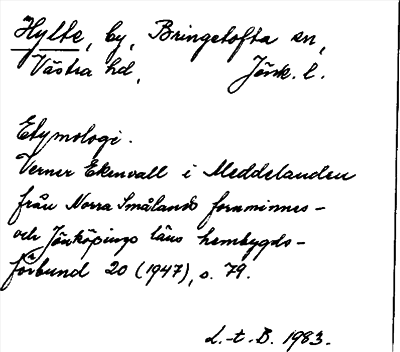 Hylte, by, Bringetofta sn,
Västra hd, Jönk. l.
Etymologi.
Verner Ekenvall i Meddelanden
från Norra Smålands fornminnes-
och Jönköpings läns hembygds-
förbund 20 (1947), s. 79.
L.-t. B. 1983.